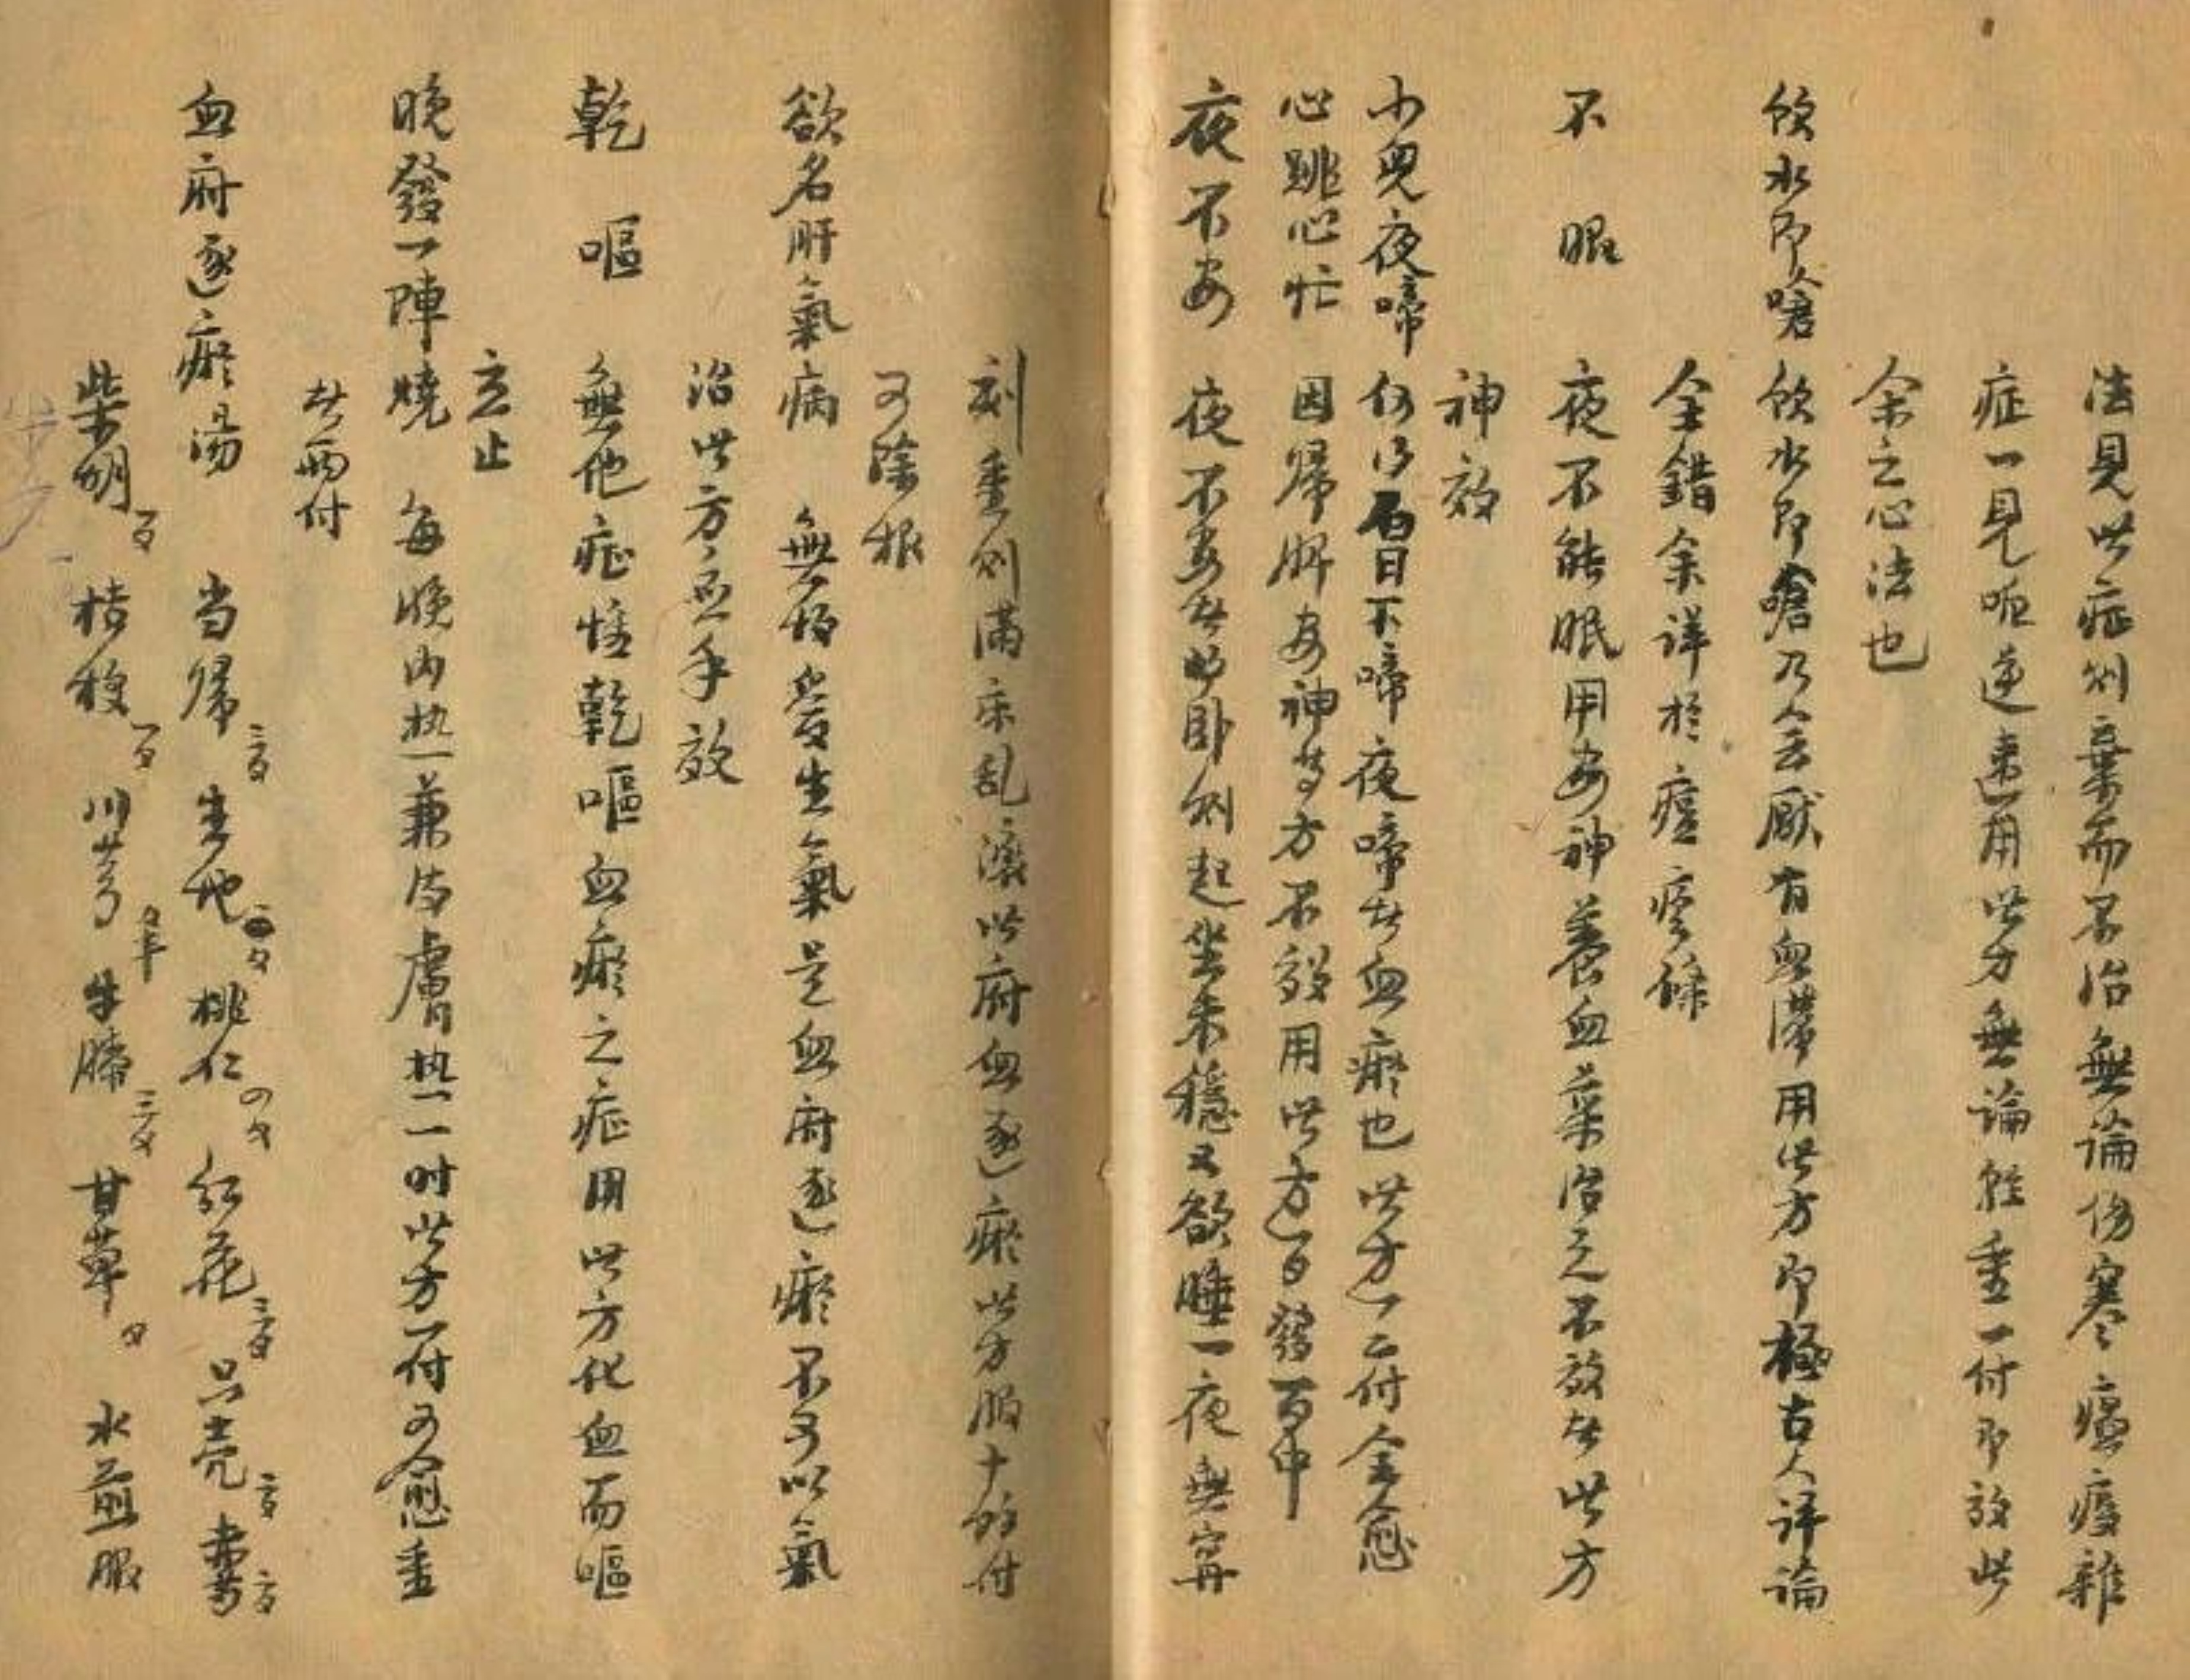 法見此症則棄而不治無論伤寒瘟疫雜
症一見呃逆速用此方無論輕重一付即效此
余之心法也
飲水即嗆 飲水即嗆乃会厭有血滞用此方即極古人评論
全錯余详於痘疹條
不眠 夜不能眠用安神養血藥治之不效者此方
神效
小児夜啼 何得白日不啼夜啼者血瘀也此方一二付全愈
心跳心忙 因歸脾安神等方不效用此方百發百中
夜不安 夜不安者將卧則起坐未穩又欲睡一夜無寧
刻重則滿床乱滾此府血逐瘀此方服十餘付
可除根
欲名肝氣病 無故愛生氣是血府逐瘀不可以氣
治此方應手效
乾嘔 無他症惟乾嘔血瘀之症用此方化血而嘔
立止
晚發一陣燒 每晚内热兼皮膚热一时此方一付可愈重
者两付
血府逐瘀湯 当歸三錢 生地 桃仁四錢 红花三錢 只壳二錢 赤芍二錢
柴胡一錢 桔梗一錢 川芎錢半 牛膝三錢 甘草錢 水煎服